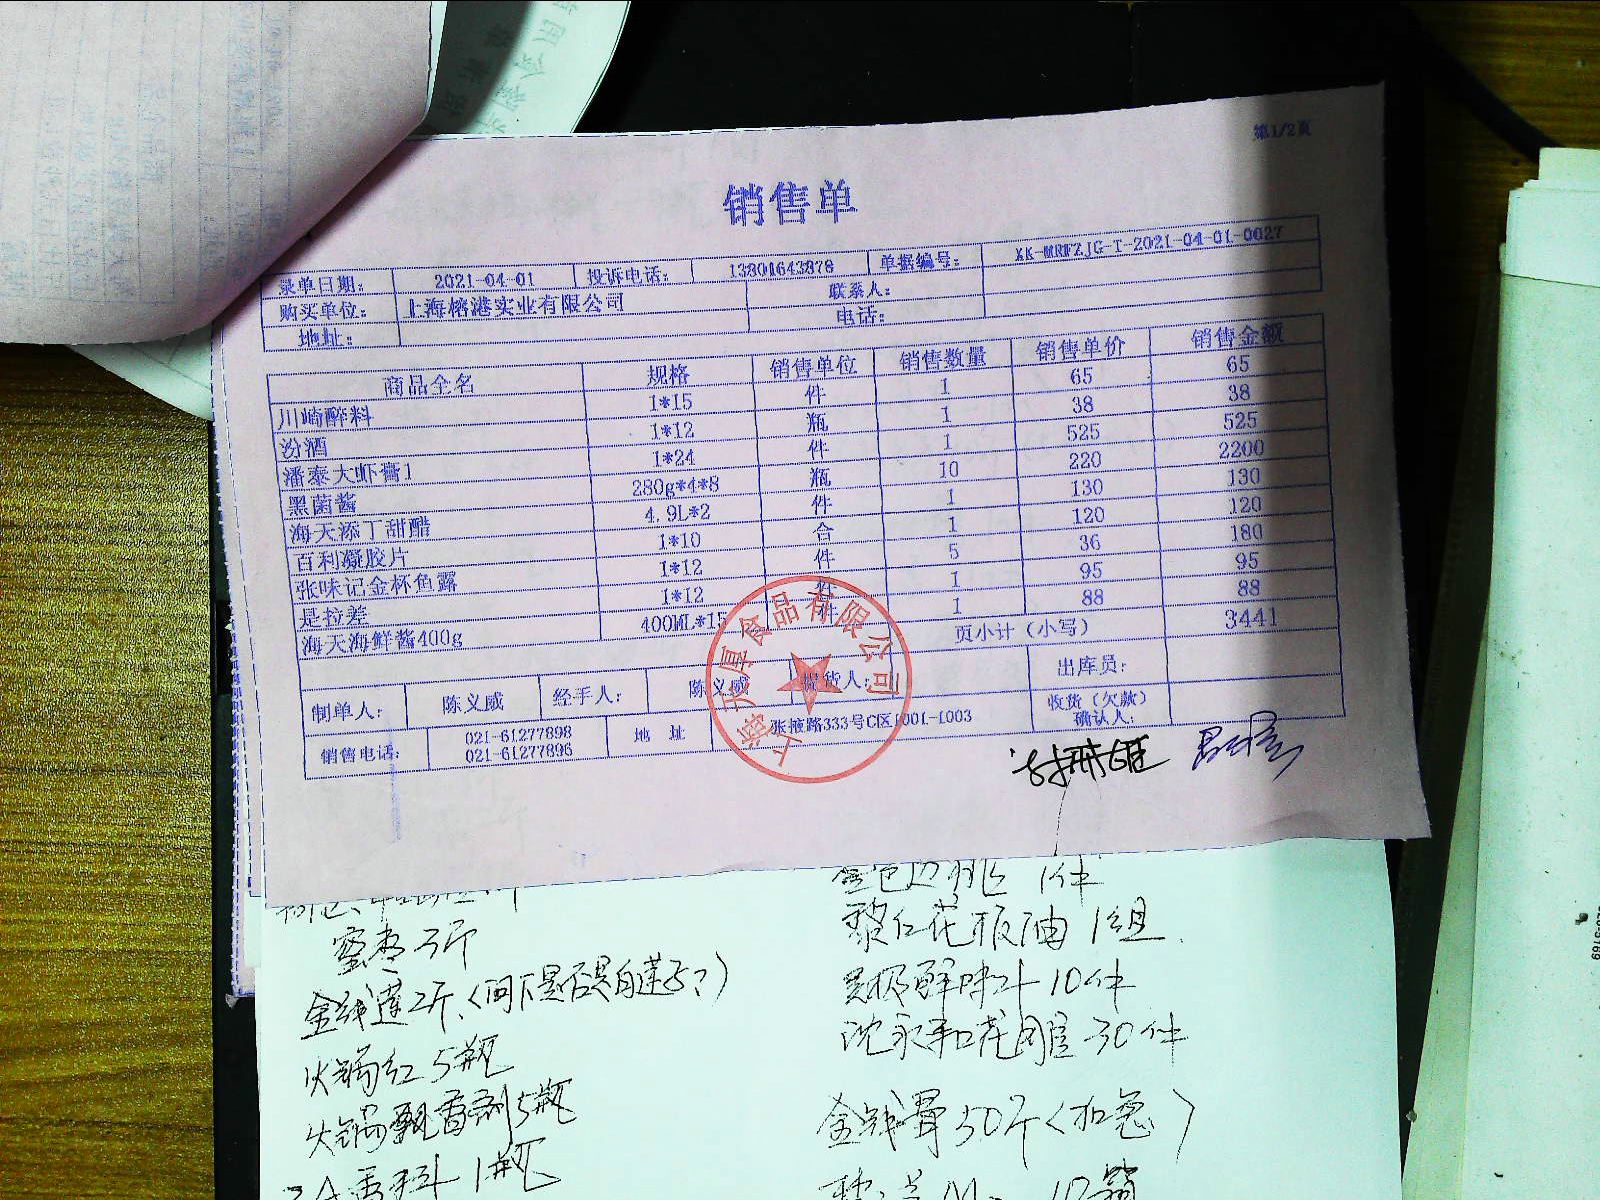 第1/2页
销售单
录单日期： 2021-04-01 投诉电话： 13801643878 单据编号： XK-MRFZJG-T-2021-04-01-0027
购买单位： 上海榕港实业有限公司 联系人：
地址： 电话：
商品全名 规格 销售单位 销售数量 销售单价 销售金额
川崎醉料 1*15 件 1 65 65
汾酒 1*12 瓶 1 38 38
潘泰大虾膏1 1*24 件 1 525 525
黑菌酱 280g*4*8 瓶 10 220 2200
海天添丁甜醋 4.9L*2 件 1 130 130
百利凝胶片 1*10 合 1 120 120
张味记金杯鱼露 1*12 件 5 36 180
是拉差 1*12 1 95 95
海天海鲜酱400g 400ML*15 件 1 88 88
页小计（小写） 3441
制单人： 陈义威 经手人： 陈义威 提货人： 出库员：
销售电话： 021-61277898 021-61277896 地 址 张掖路333号C区1001-1003 收货（欠款）确认人：
食品有限公司
蜜枣3斤
金钱莲2斤(问下是否是白莲子?)
火锅红5瓶
火锅飘香剂5瓶
1瓶
1件
黎红花椒油1组
鲜味汁10件
沈永和花雕30件
金钱骨50斤(加急)